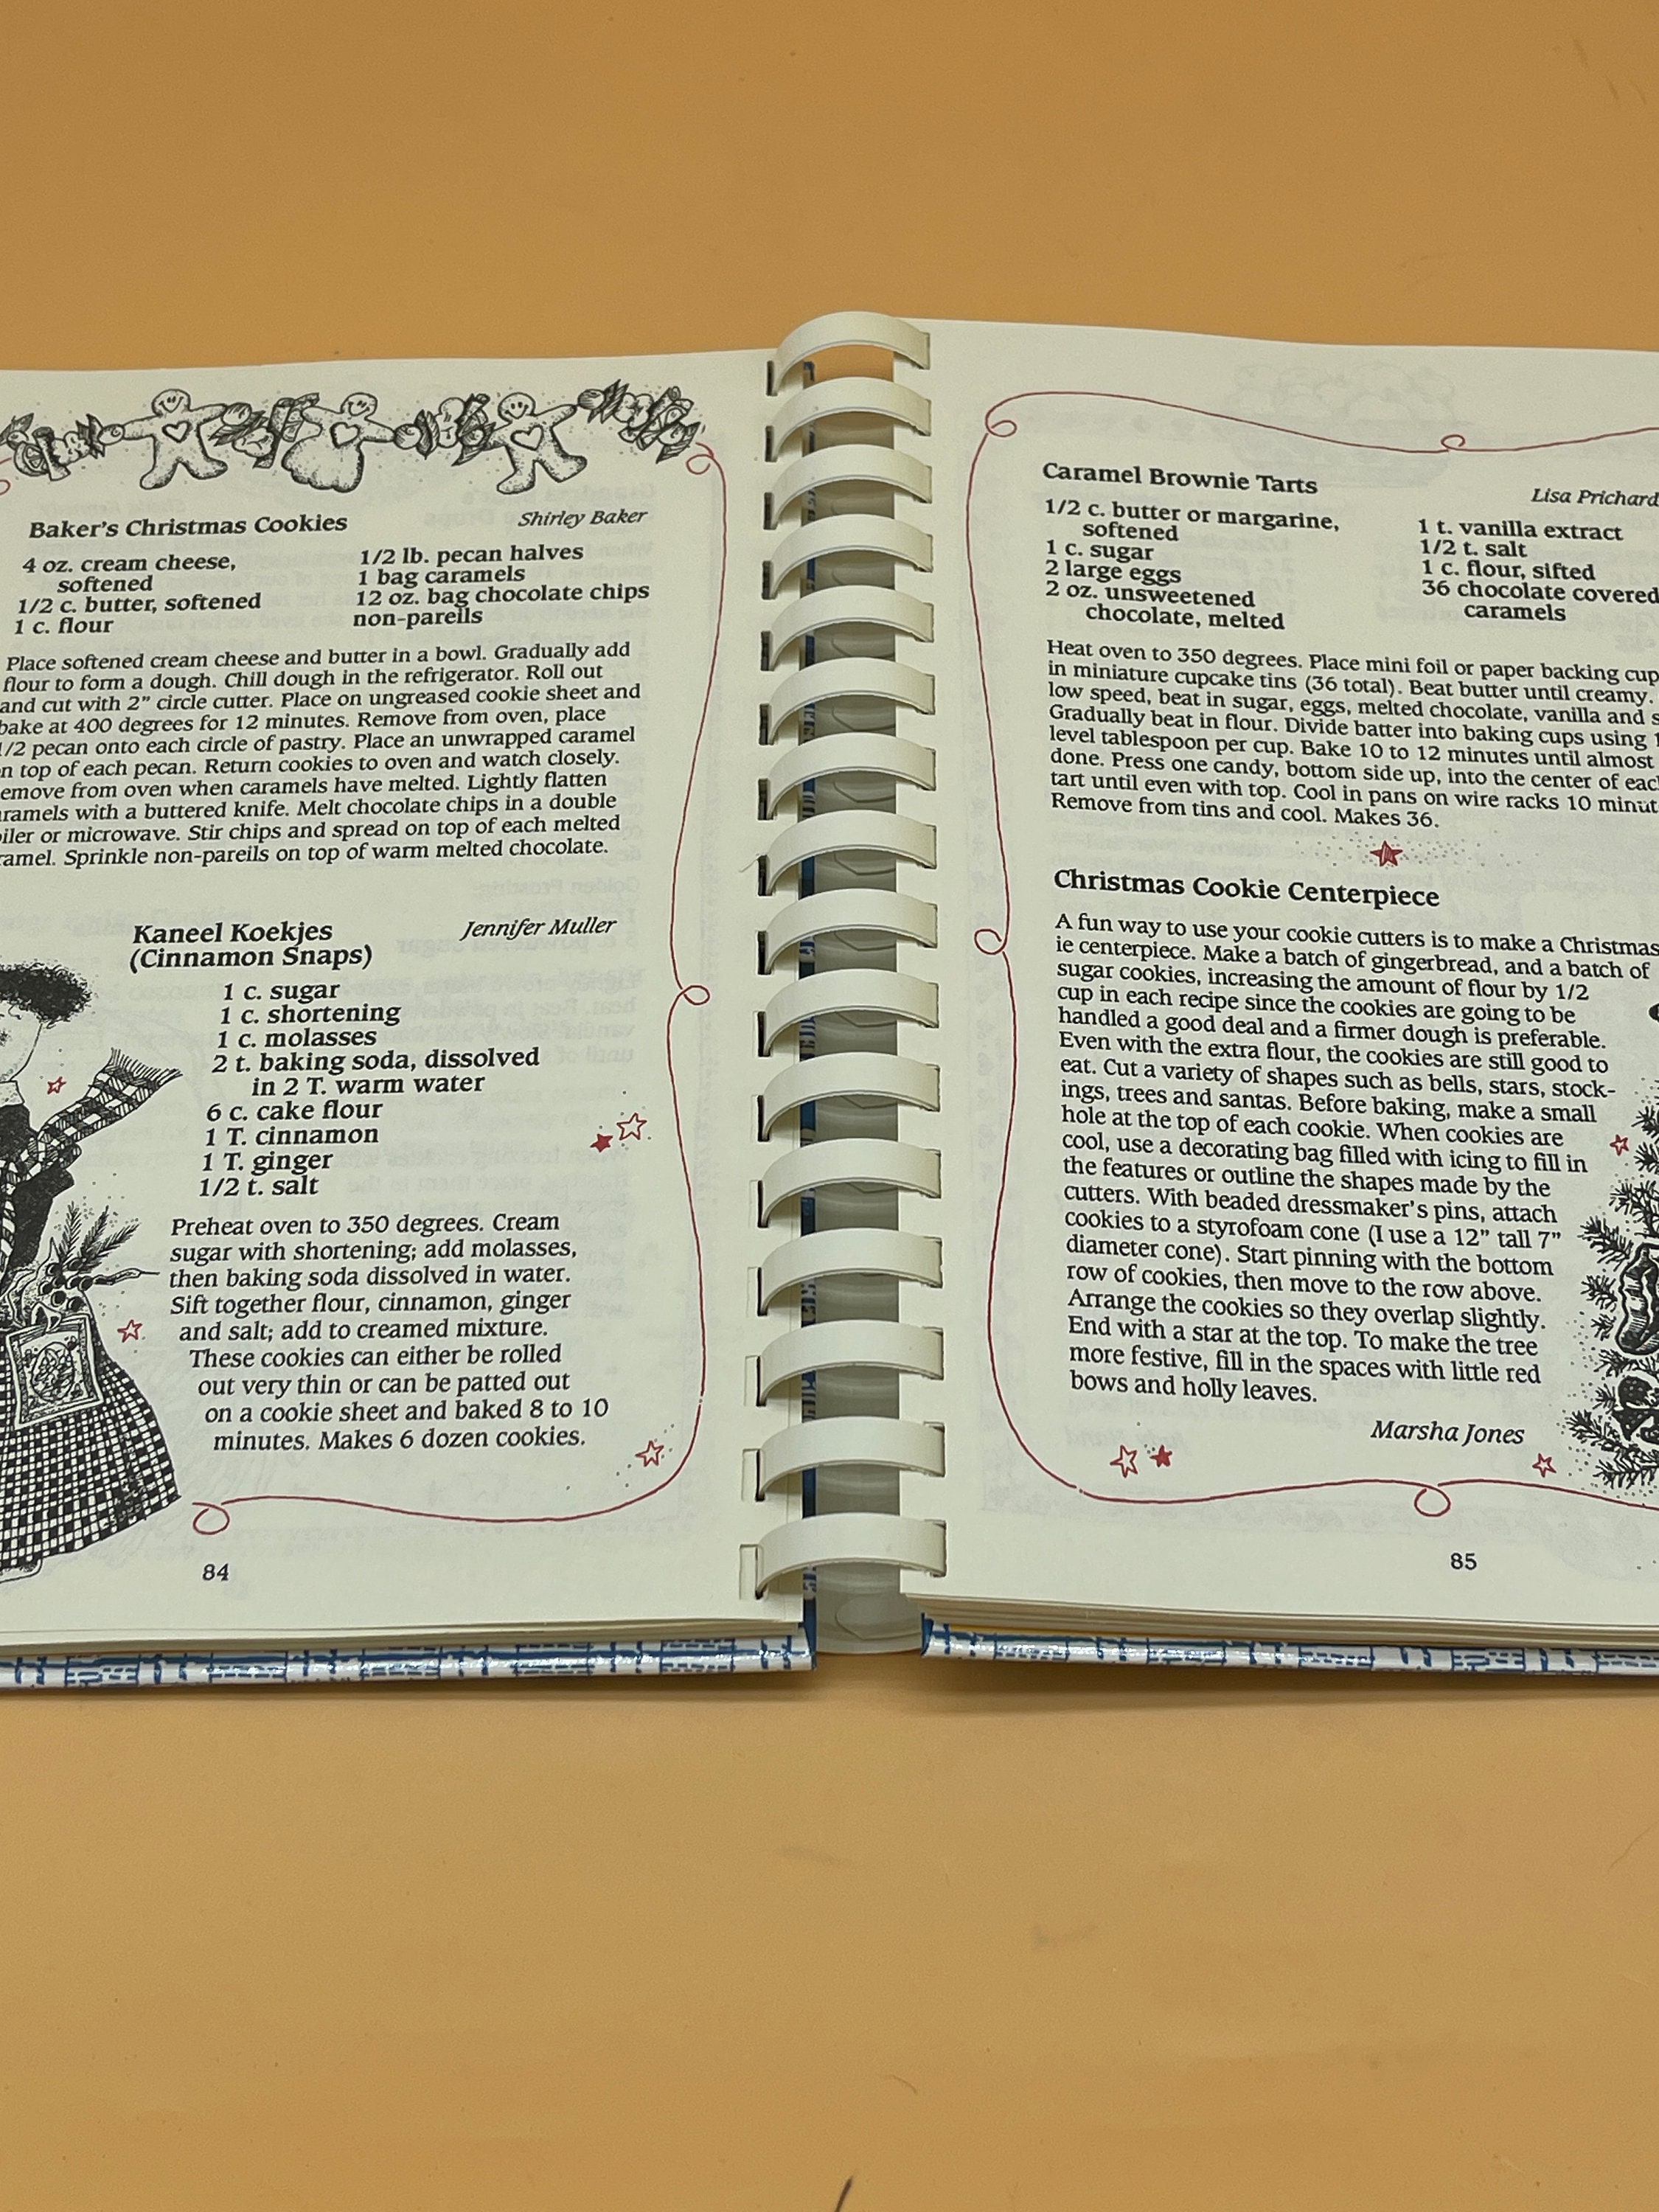 Baker's Christmas Cookies
Shirley Baker
4 oz. cream cheese,
softened
1/2 c. butter, softened
1 c. flour
1/2 lb. pecan halves
1 bag caramels
12 oz. bag chocolate chips
non-pareils
Place softened cream cheese and butter in a bowl. Gradually add
flour to form a dough. Chill dough in the refrigerator. Roll out
and cut with 2" circle cutter. Place on ungreased cookie sheet and
bake at 400 degrees for 12 minutes. Remove from oven, place
1/2 pecan onto each circle of pastry. Place an unwrapped caramel
on top of each pecan. Return cookies to oven and watch closely.
emove from oven when caramels have melted. Lightly flatten
aramels with a buttered knife. Melt chocolate chips in a double
oiler or microwave. Stir chips and spread on top of each melted
ramel. Sprinkle non-pareils on top of warm melted chocolate.
Kaneel Koekjes
(Cinnamon Snaps)
Jennifer Muller
1 c. sugar
1 c. shortening
1 c. molasses
2 t. baking soda, dissolved
in 2 T. warm water
6 c. cake flour
1 T. cinnamon
1 T. ginger
1/2 t. salt
Preheat oven to 350 degrees. Cream
sugar with shortening; add molasses,
then baking soda dissolved in water.
Sift together flour, cinnamon, ginger
and salt; add to creamed mixture.
These cookies can either be rolled
out very thin or can be patted out
on a cookie sheet and baked 8 to 10
minutes. Makes 6 dozen cookies.
84
Caramel Brownie Tarts
Lisa Prichard
1/2 c. butter or margarine,
softened
1 c. sugar
2 large eggs
2 oz. unsweetened
chocolate, melted
1 t. vanilla extract
1/2 t. salt
1 c. flour, sifted
36 chocolate covered
caramels
Heat oven to 350 degrees. Place mini foil or paper backing cup
in miniature cupcake tins (36 total). Beat butter until creamy.
low speed, beat in sugar, eggs, melted chocolate, vanilla and s
Gradually beat in flour. Divide batter into baking cups using 1
level tablespoon per cup. Bake 10 to 12 minutes until almost
done. Press one candy, bottom side up, into the center of eac
tart until even with top. Cool in pans on wire racks 10 minut
Remove from tins and cool. Makes 36.
Christmas Cookie Centerpiece
A fun way to use your cookie cutters is to make a Christmas
ie centerpiece. Make a batch of gingerbread, and a batch of
sugar cookies, increasing the amount of flour by 1/2
cup in each recipe since the cookies are going to be
handled a good deal and a firmer dough is preferable.
Even with the extra flour, the cookies are still good to
eat. Cut a variety of shapes such as bells, stars, stock-
ings, trees and santas. Before baking, make a small
hole at the top of each cookie. When cookies are
cool, use a decorating bag filled with icing to fill in
the features or outline the shapes made by the
cutters. With beaded dressmaker's pins, attach
cookies to a styrofoam cone (I use a 12" tall 7"
diameter cone). Start pinning with the bottom
row of cookies, then move to the row above.
Arrange the cookies so they overlap slightly.
End with a star at the top. To make the tree
more festive, fill in the spaces with little red
bows and holly leaves.
Marsha Jones
85